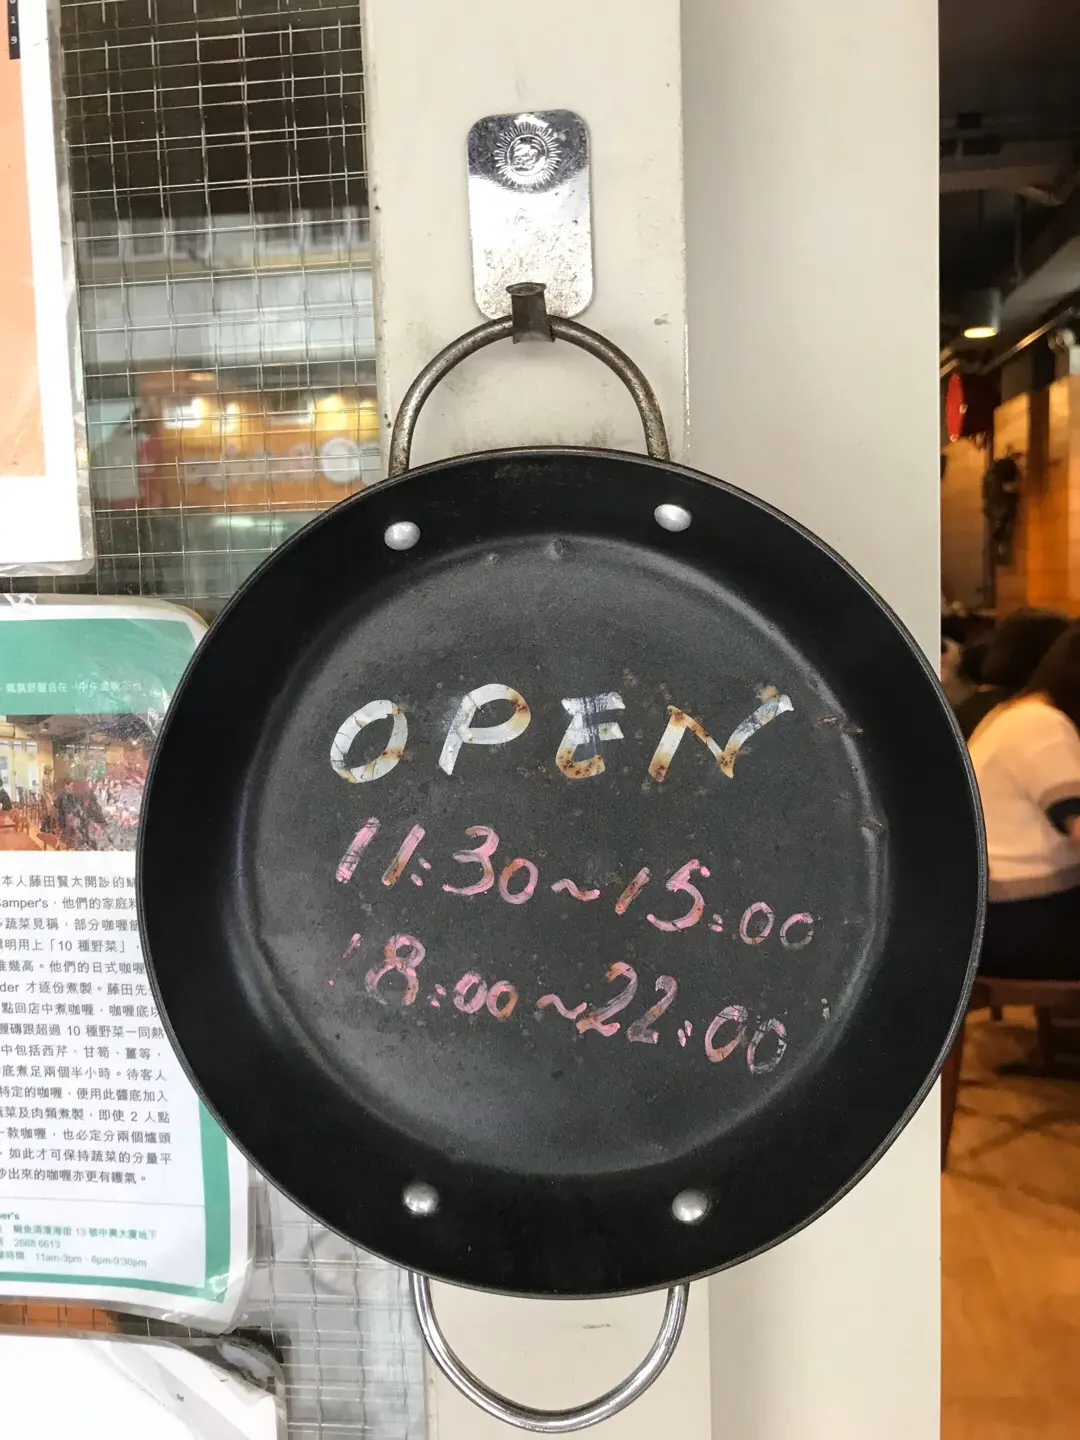 OPEN
11:30~15:00
18:00~22:00
本人藤田賢太開設的
amper's，他們的家庭料
蔬菜見稱，部分咖喱飯
明用上「10 種野菜」，
幾高。他們的日式咖喱
der 才逐份煮製。藤田先
點回店中煮咖喱，咖喱底以
喱磚跟超過 10 種野菜一同熱
中包括西芹、甘筍、薑等，
底煮足兩個半小時。待客人
特定的咖喱，便用此醬底加入
蔬菜及肉類煮製，即使 2 人點
一款咖喱，也必定分兩個爐頭
，如此才可保持蔬菜的分量平
炒出來的咖喱亦更有鑊氣。
er's
鰂魚涌濱海街 13 號中興大廈地下
2668 6613
時間 11am-3pm、6pm-9:30pm